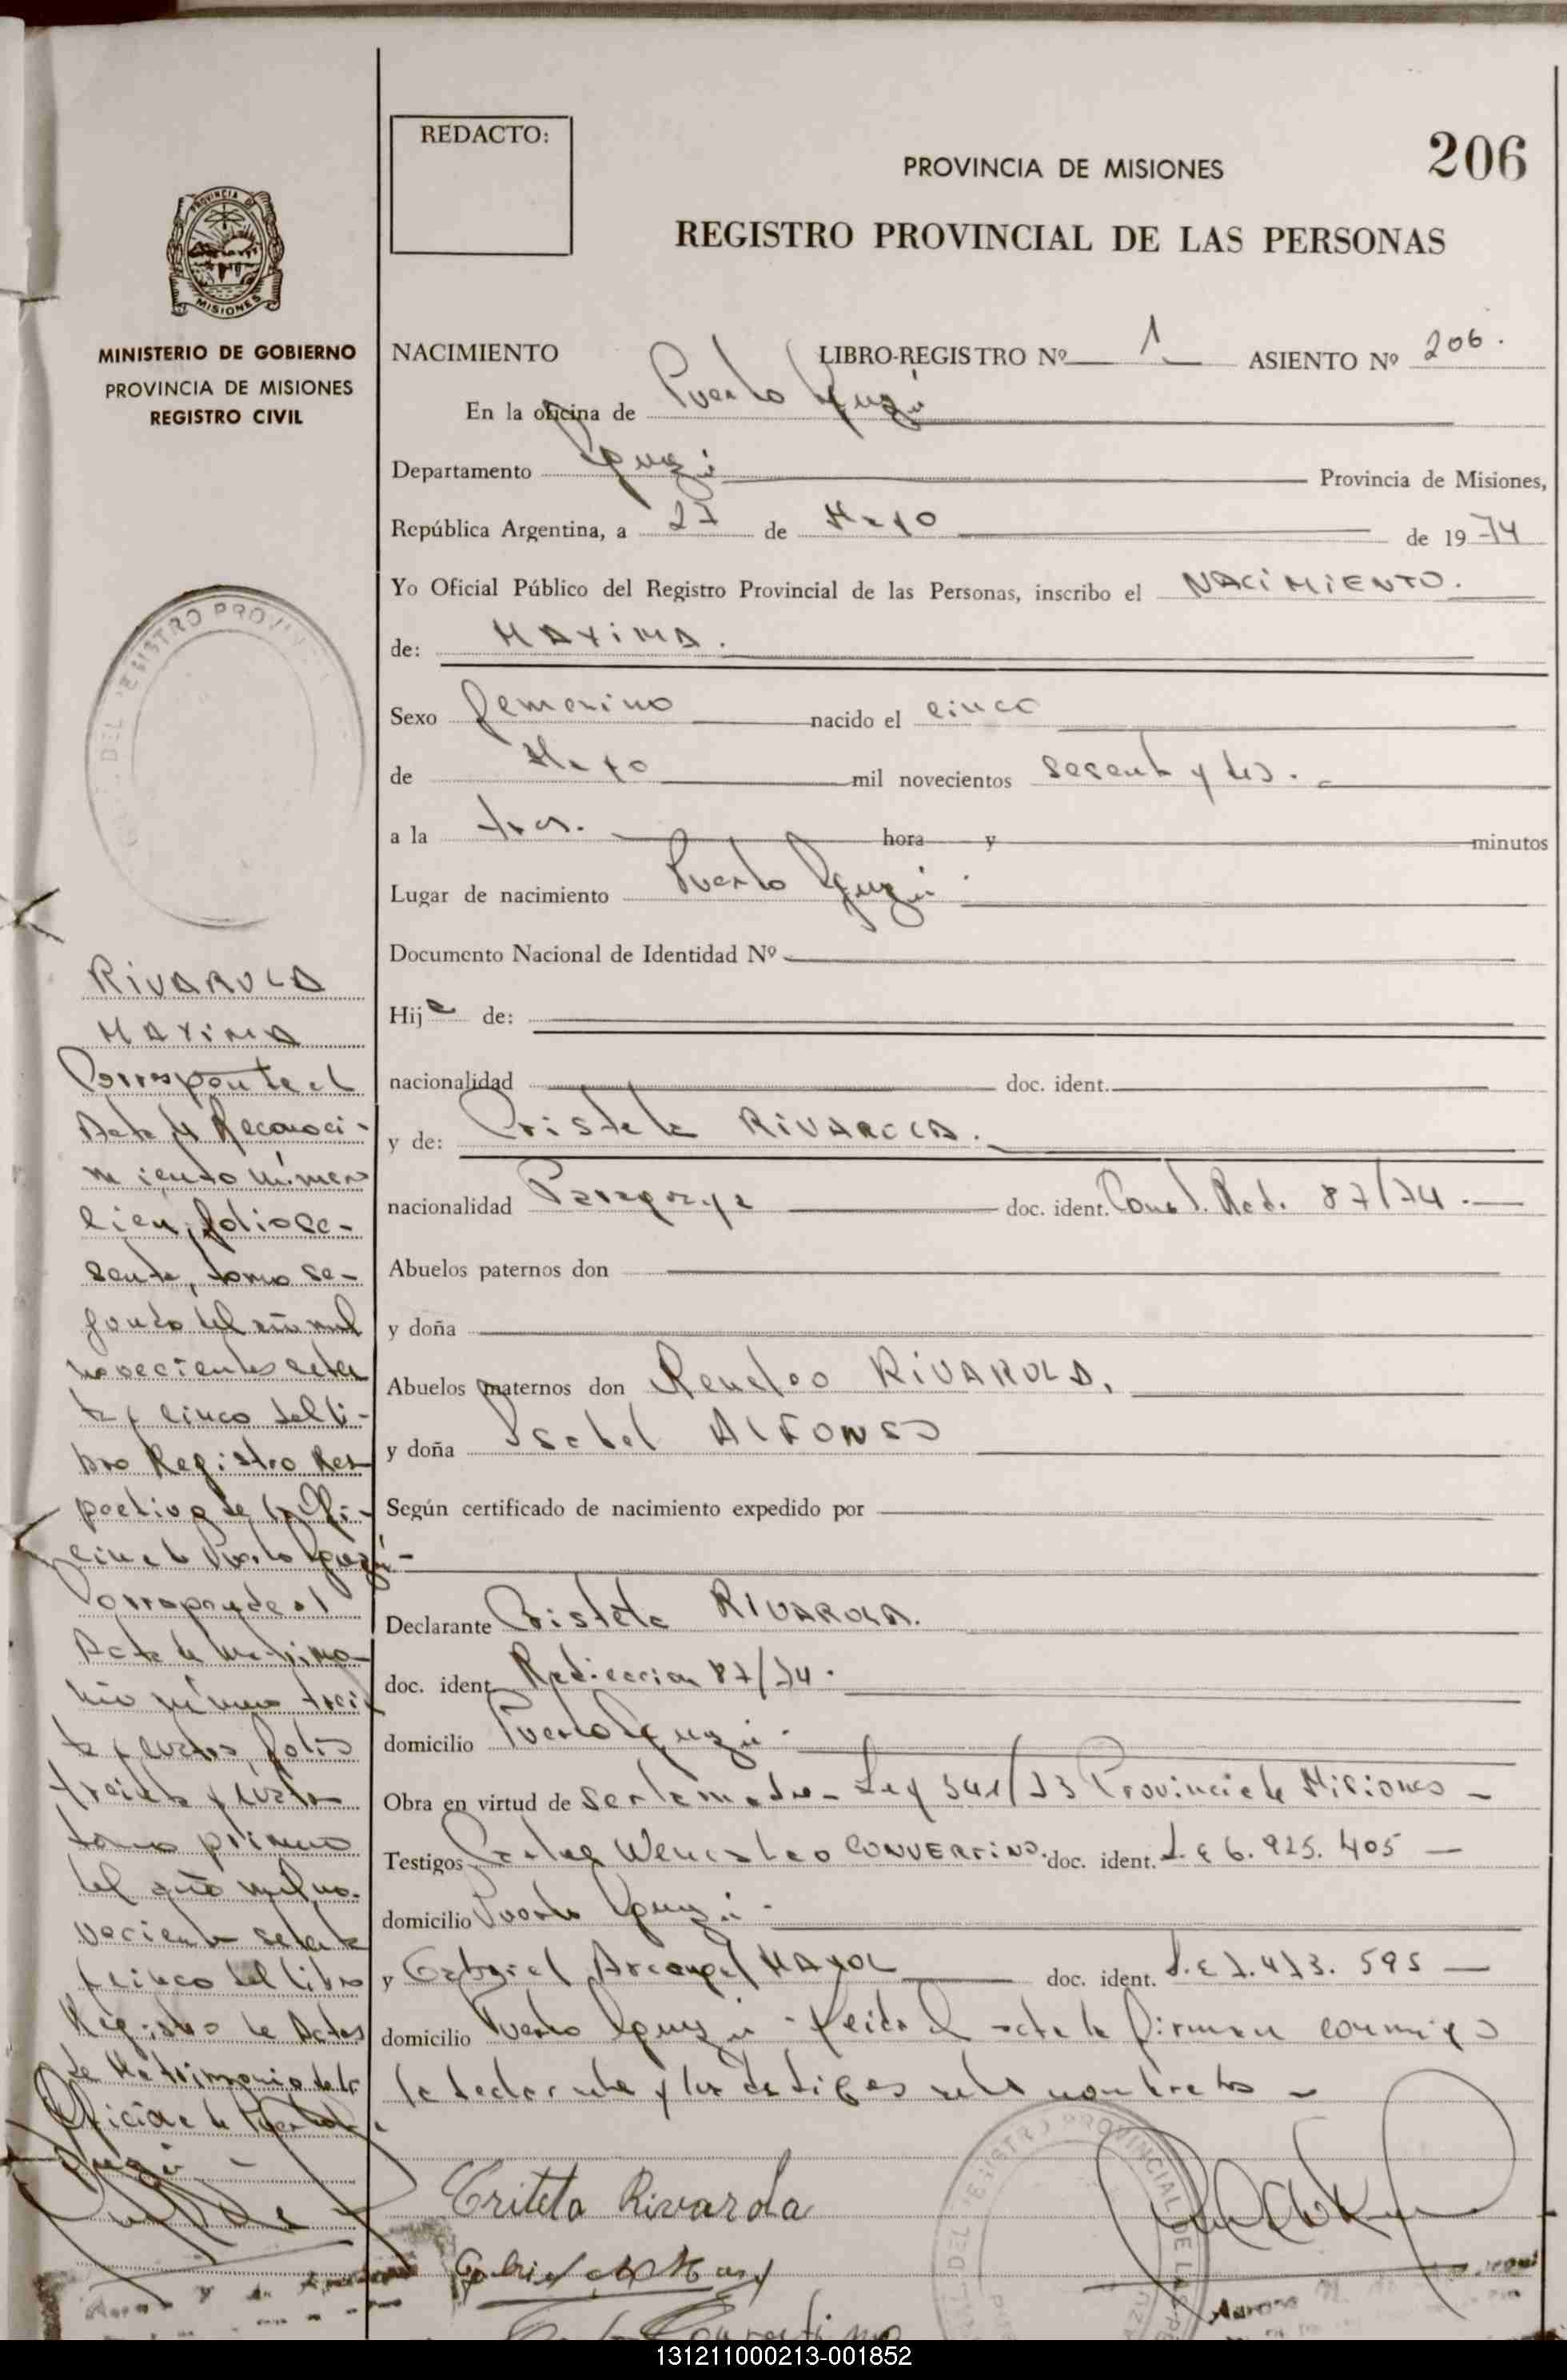 REDACTO:
206
PROVINCIA DE MISIONES
REGISTRO PROVINCIAL DE LAS PERSONAS
PROVINCIA DE
MISIONES
MINISTERIO DE GOBIERNO
PROVINCIA DE MISIONES
REGISTRO CIVIL
NACIMIENTO LIBRO-REGISTRO Nº 1 ASIENTO Nº 206.
En la oficina de Puerto Iguazú
Departamento Iguazú Provincia de Misiones,
República Argentina, a 27 de Mayo de 1974
Yo Oficial Público del Registro Provincial de las Personas, inscribo el NACIMIENTO.
de: MAXIMA.
Sexo femenino nacido el cinco
de Mayo mil novecientos sesenta y tres.
a la tres. hora y minutos
Lugar de nacimiento Puerto Iguazú.
Documento Nacional de Identidad Nº
Hija de:
nacionalidad doc. ident.
y de: Cristeta RIVAROLA.
nacionalidad Paraguaya doc. ident. Const. Rad. 87/74.
Abuelos paternos don
y doña
Abuelos maternos don RIVAROLA,
y doña Isabel ALFONSO
Según certificado de nacimiento expedido por
Declarante Cristeta RIVAROLA.
doc. ident. Radicacion 87/74.
domicilio Puerto Iguazú.
Obra en virtud de ser la madre - Ley 341/73 Provincia de Misiones -
Testigos Wenceslao CONVERTINO. doc. ident. L.E 6.925.405 -
domicilio Puerto Iguazú -
y Gabriel Arcangel MAYOL doc. ident. L.E 7.473.595 -
domicilio Puerto Iguazú - Leida el acta la firman conmigo
la declarante y los testigos nombrados -
RIVAROLA
MAXIMA
Corresponde el
Acta de Reconoci-
miento número
cien, folio se-
senta, tomo se-
gundo del año mil
novecientos seten
ta y cinco del li-
bro Registro Res
pectivo de la Ofi-
cina de Puerto Iguazú -
Corresponde al
Acta de Matrimo-
nio número trein
ta y cuatro, folio
treinta y cuatro
tomo primero
del año mil no-
vecientos setenta
y cinco del libro
Registro de Actas
de Matrimonio de la
Oficina de Puerto
Iguazú -
Criteta Rivarola
131211000213-001852